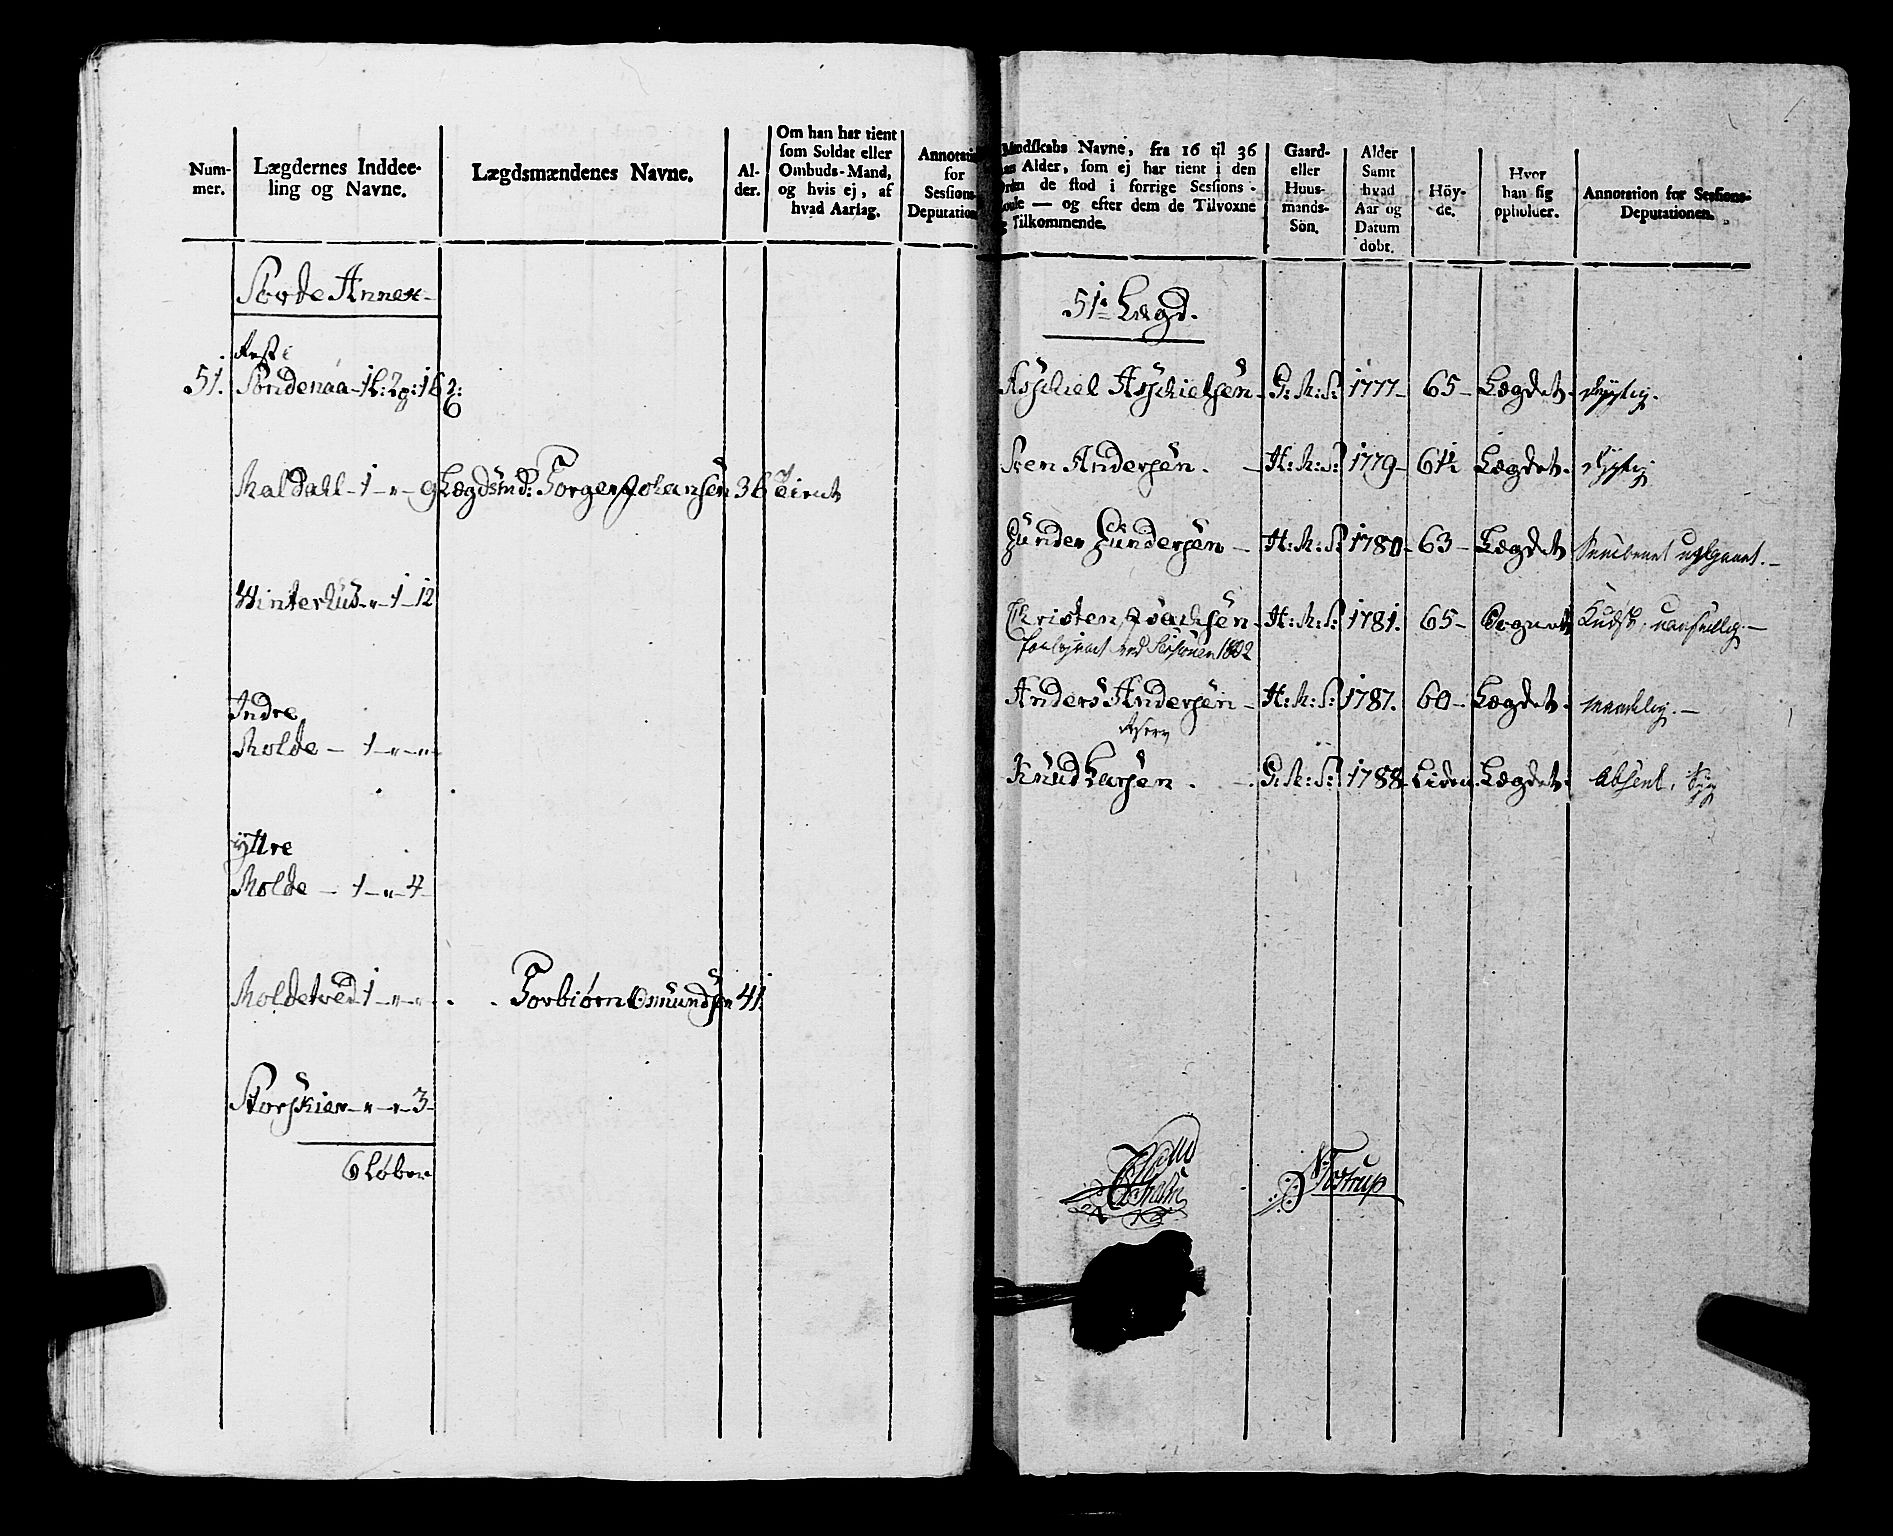 Num-
mer.
Lægdernes Inddee-
ling og Navne.
Lægdsmændenes Navne.
Al-
der.
Om han har tient
som Soldat eller
Ombuds-Mand,
og hvis ej, af
hvad Aarsag.
Annotati
for
Sessions-
Deputation
Annex
Rest i
51. Söndenaa - 1 l: 2 p: 16 2:
6
Maldahl - 1 - " - 9 Lægdsmd: Torger Johansen 36 Tient
Winterhus - " - 1 - 12
Indre
Molde - 1 - " - "
Yttre
Molde - 1 - " - 4
Moldetved 1 - " - " - Torbiørn Omundsen 41.
Storskier - " - " - 3 -
6 Løber
Mandskabs Navne, fra 16 til 36
Aars Alder, som ej har tient i den
Orden de stod i forrige Sessions-
Roulle — og efter dem de Tilvoxne
og Tilkommende.
Gaard-
eller
Huus-
mands-
Sön.
Alder
Samt
hvad
Aar og
Datum
döbt.
Höy-
de.
Hvor
han sig
opholder.
Annotation for Sessions-
Deputationen.
51de Lægd.
Aschiel Aschielsen - G: M: S: 1777 - 65 - Lægdet - dygtig.
Sven Andersen. - H: M: S: 1779 - 61½ Lægdet - dygtig
Gunder Gundersen - H: M: S: 1780 - 63 - Lægdet
Christen Isachsen - H: M: S: 1781. 65 - Sognet
ved Sessionen 1802
Anders Andersen - H: M: S: 1787. 60 - Lægdet - maadelig. -
Knud Larsen. - G: M: S: 1788 Liden - Lægdet - Absent, Syg
Tostrup